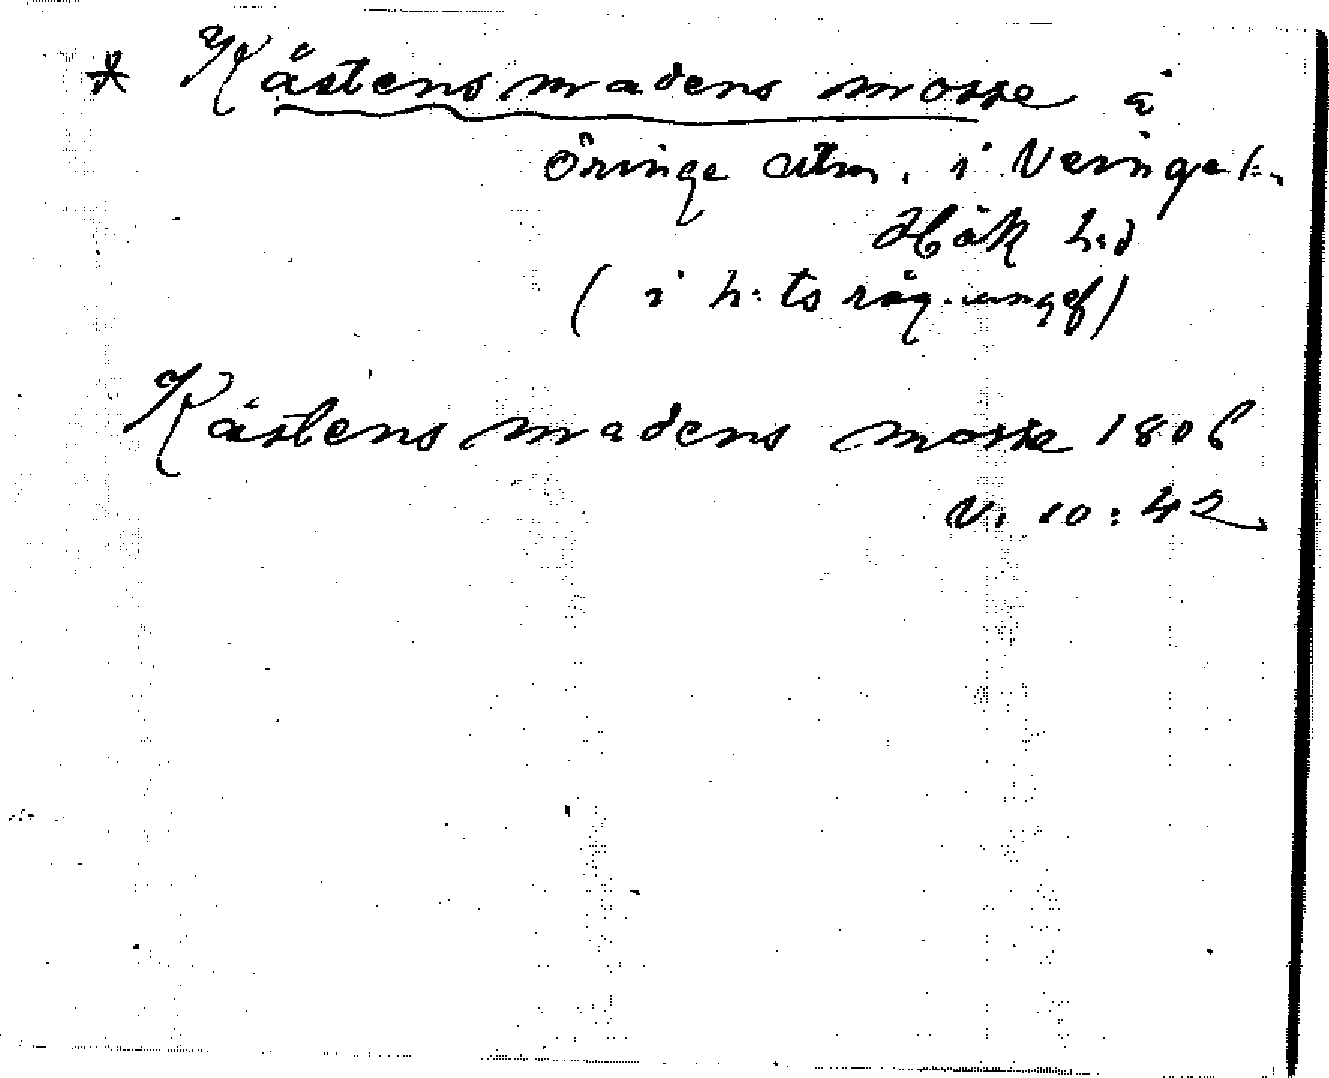 * Kästensmadens mosse å
Öringe utm. i Veinge s.
Hök h:d
( i h:ts räg. ungef)
Kästensmadens mosse 1806
V. 10:42